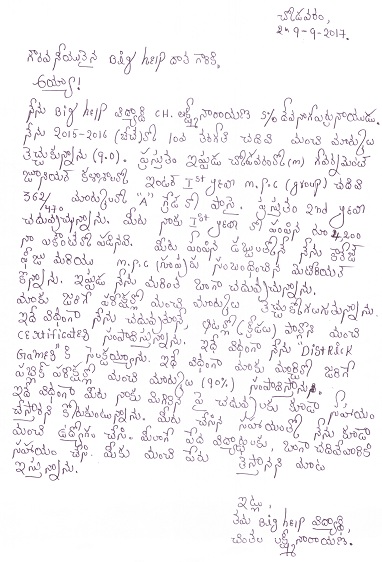 చోడవరం,
29-9-2017.
గౌరవనీయులైన Big help దాత గారికి,
అయ్యా!
నేను Big help విద్యార్థి CH. లక్ష్మీనారాయణ S/o దేవనాగేశ్వరనాయుడు.
నేను 2015-2016 లో 10వ తరగతి చదివి మంచి మార్కులు
తెచ్చుకున్నాను (9.0). ప్రస్తుతం ఇప్పుడు చోడవరంలో (m) గవర్నమెంట్
జూనియర్ కళాశాలలో ఇంటర్ Ist year m.p.c (group) చదివి
362/470 మార్కులతో "A" గ్రేడ్ లో పాసై. ప్రస్తుతం 2nd year
చదువుచున్నాను. మీరు నాకు Ist year లో పంపిన రూ 4,200
నా అకౌంట్ లో పడినవి. మీరు పంపిన డబ్బులతో నేను కాలేజీ
ఫీజు మరియు m.p.c (గ్రూపు)కు సంబంధించిన మెటీరియల్
కొన్నాను. ఇప్పుడు నేను మరింత బాగా చదువుచున్నాను.
మాకు జరిగే పరీక్షల్లో మంచి మార్కులు తెచ్చుకోగలుగుతున్నాను.
ఇదే విధంగా నేను చదువుతూనే, ఆటల్లో (క్రీడలు) పాల్గొని మంచి
Certificates సంపాదిస్తున్నాను. ఇదే విధంగా నేను District
Games కి సంబంధించిన. ఇదే విధంగా మాకు మార్చిలో జరిగే
పబ్లిక్ పరీక్షల్లో మంచి మార్కులు (90%) సంపాదిస్తాను.
ఇదే విధంగా మీరు నాకు మిగిలిన పై చదువులకు కూడా సహాయం
చేస్తారని కోరుకుంటున్నాను. మీరు చేసిన సహాయంతో నేను కూడా
మంచి ఉద్యోగం చేసి. మీలాగే పేద విద్యార్థులకు, బాగా చదివేవారికి
సహాయం చేసి. మీకు మంచి పేరు తెస్తానని మాట
ఇస్తున్నాను.
ఇట్లు,
తమ Big help విద్యార్థి,
చింతల లక్ష్మీనారాయణ.